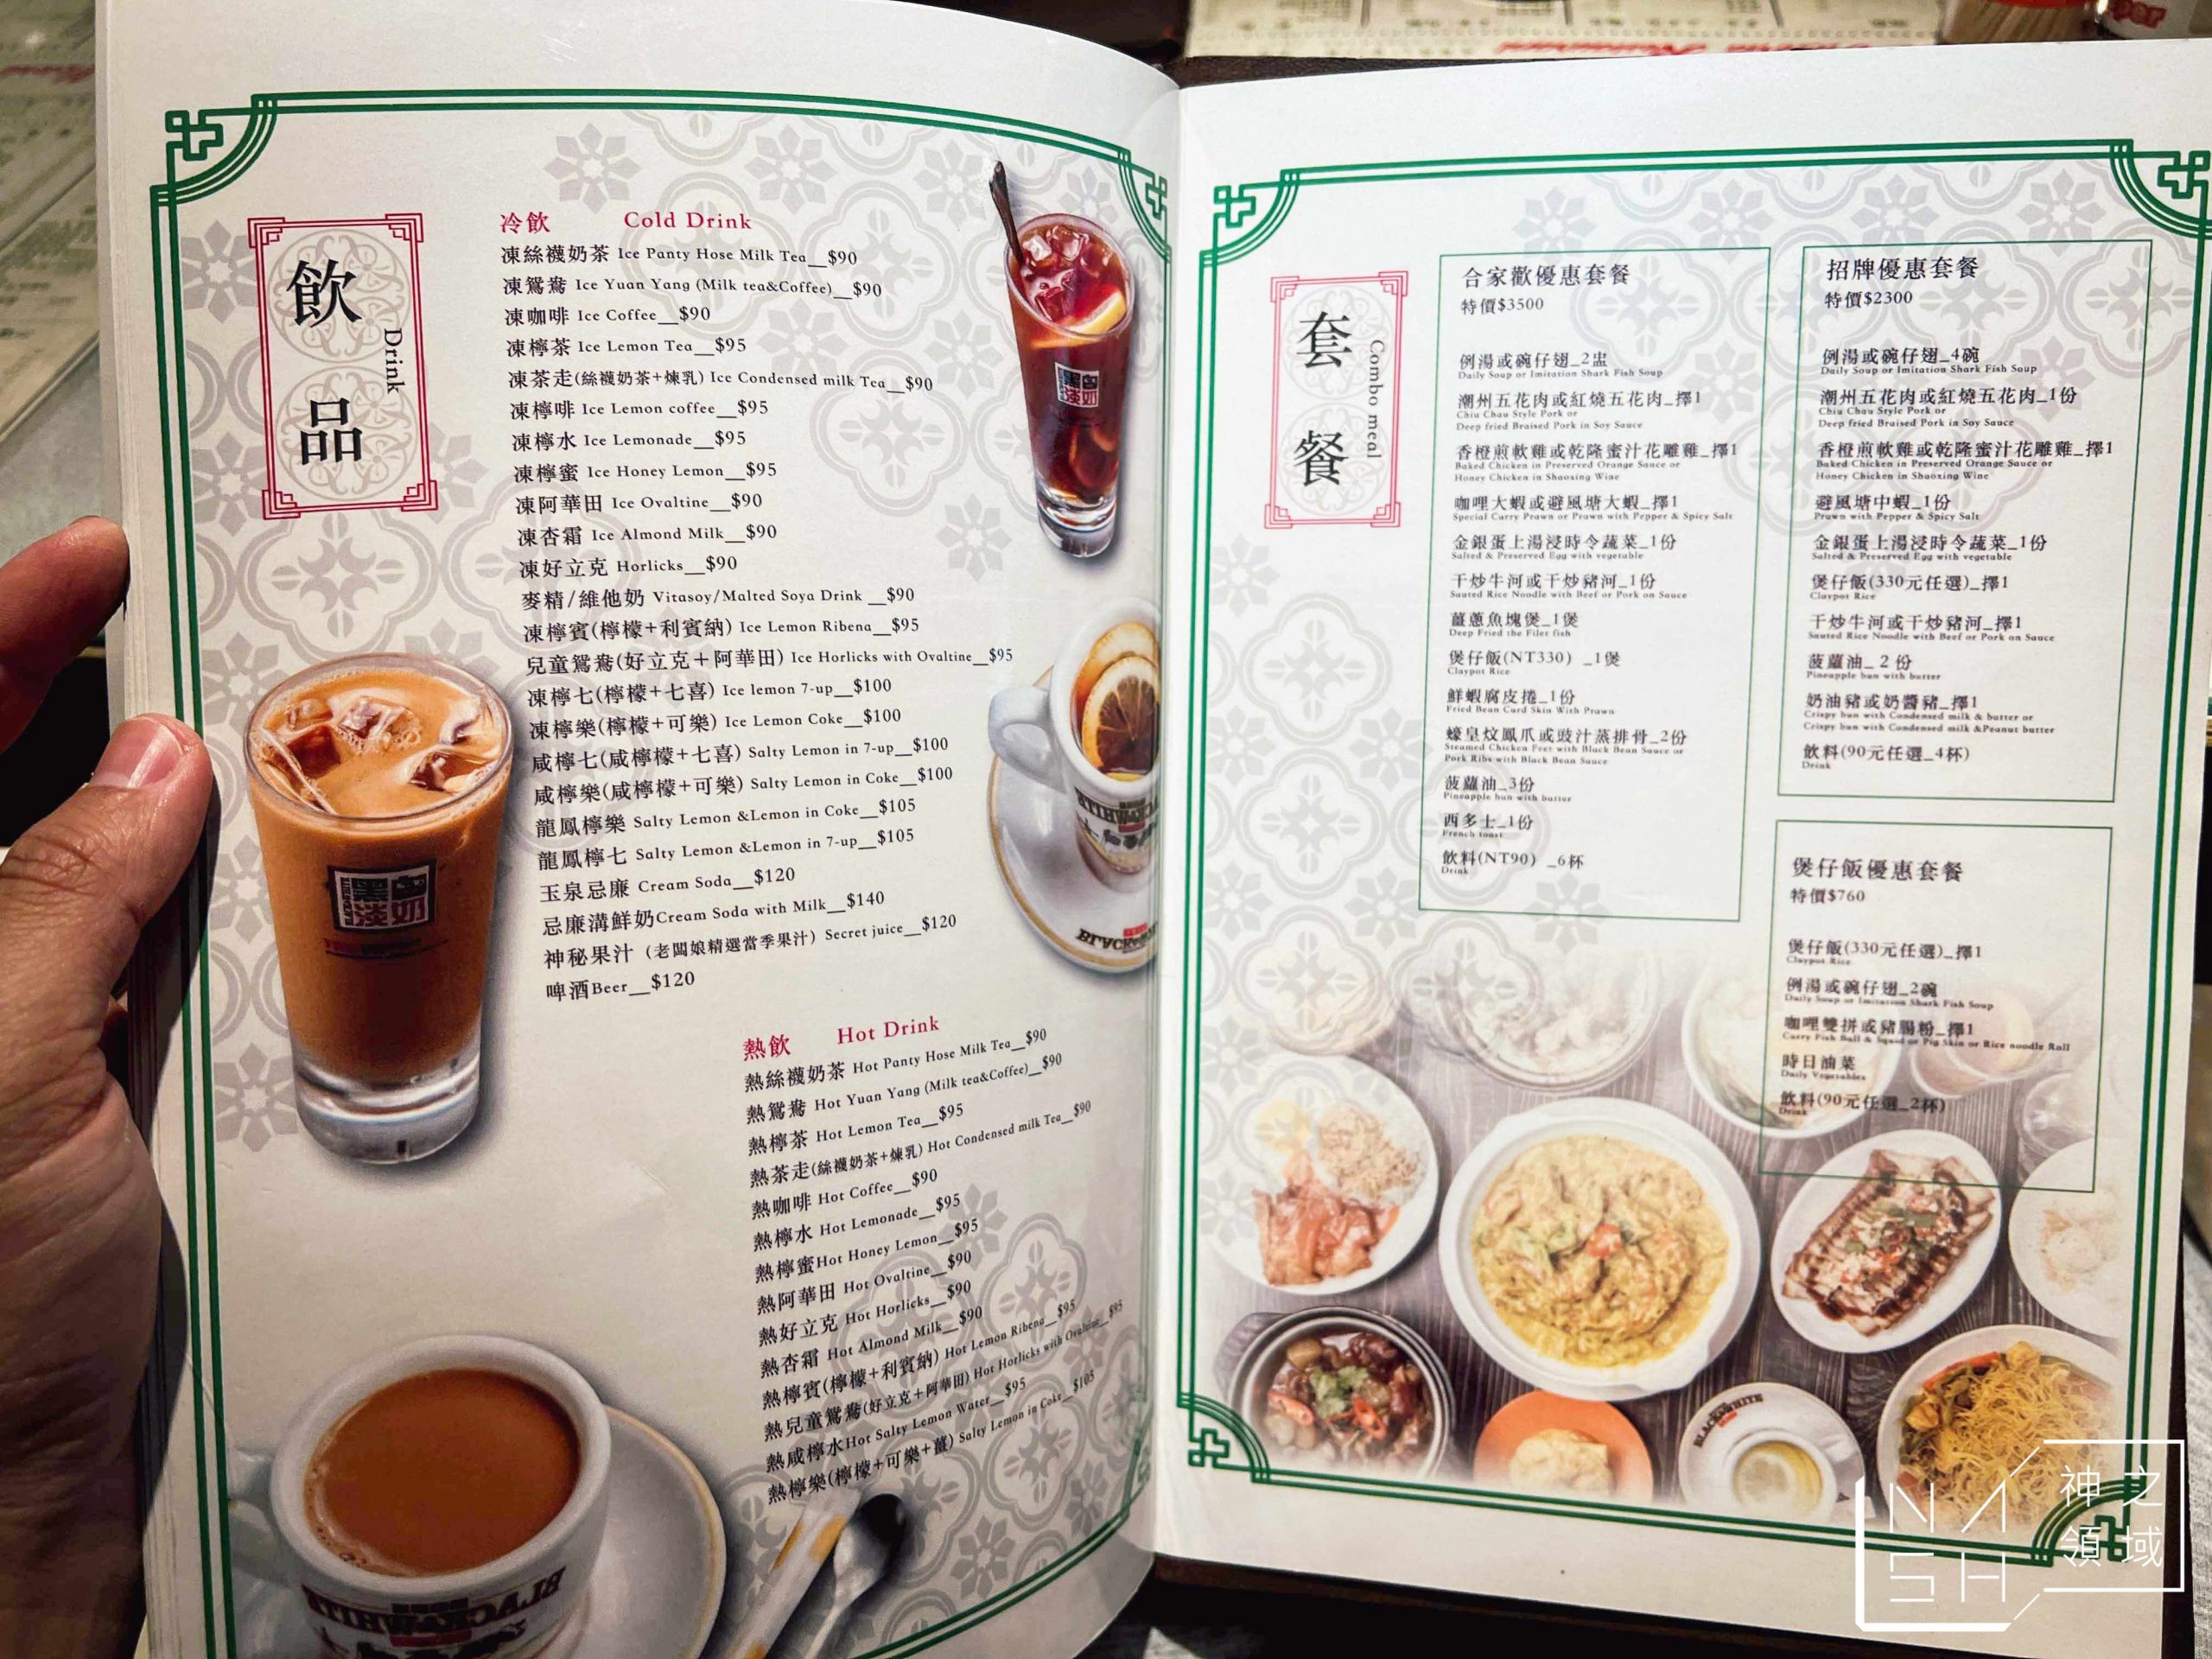 飲品
Drink
冷飲 Cold Drink
凍絲襪奶茶 Ice Panty Hose Milk Tea__$90
凍鴛鴦 Ice Yuan Yang (Milk tea&Coffee)__$90
凍咖啡 Ice Coffee__$90
凍檸茶 Ice Lemon Tea__$95
凍茶走(絲襪奶茶+煉乳) Ice Condensed milk Tea__$90
凍檸啡 Ice Lemon coffee__$95
凍檸水 Ice Lemonade__$95
凍檸蜜 Ice Honey Lemon__$95
凍阿華田 Ice Ovaltine__$90
凍杏霜 Ice Almond Milk__$90
凍好立克 Horlicks__$90
麥精/維他奶 Vitasoy/Malted Soya Drink __$90
凍檸賓(檸檬+利賓納) Ice Lemon Ribena__$95
兒童鴛鴦(好立克+阿華田) Ice Horlicks with Ovaltine__$95
凍檸七(檸檬+七喜) Ice lemon 7-up__$100
凍檸樂(檸檬+可樂) Ice Lemon Coke__$100
咸檸七(咸檸檬+七喜) Salty Lemon in 7-up__$100
咸檸樂(咸檸檬+可樂) Salty Lemon in Coke__$100
龍鳳檸樂 Salty Lemon &Lemon in Coke__$105
龍鳳檸七 Salty Lemon &Lemon in 7-up__$105
玉泉忌廉 Cream Soda__$120
忌廉溝鮮奶Cream Soda with Milk__$140
神秘果汁 (老闆娘精選當季果汁) Secret juice__$120
啤酒Beer__$120
熱飲 Hot Drink
熱絲襪奶茶 Hot Panty Hose Milk Tea__$90
熱鴛鴦 Hot Yuan Yang (Milk tea&Coffee)__$90
熱檸茶 Hot Lemon Tea__$95
熱茶走(絲襪奶茶+煉乳) Hot Condensed milk Tea__$90
熱咖啡 Hot Coffee__$90
熱檸水 Hot Lemonade__$95
熱檸蜜Hot Honey Lemon__$95
熱阿華田 Hot Ovaltine__$90
熱好立克 Hot Horlicks__$90
熱杏霜 Hot Almond Milk__$90
熱檸賓(檸檬+利賓納) Hot Lemon Ribena__$95
熱兒童鴛鴦(好立克+阿華田) Hot Horlicks with Ovaltine__$95
熱咸檸水Hot Salty Lemon Water__$95
熱檸樂(檸檬+可樂+薑) Salty Lemon in Coke__$105
黑白
淡奶
BLACK&WHITE
套餐
Combo meal
合家歡優惠套餐
特價$3500
例湯或碗仔翅_2盅
Daily Soup or Imitation Shark Fish Soup
潮州五花肉或紅燒五花肉_擇1
Chiu Chau Style Pork or
Deep fried Braised Pork in Soy Sauce
香橙煎軟雞或乾隆蜜汁花雕雞_擇1
Baked Chicken in Preserved Orange Sauce or
Honey Chicken in Shaoxing Wine
咖哩大蝦或避風塘大蝦_擇1
Special Curry Prawn or Prawn with Pepper & Spicy Salt
金銀蛋上湯浸時令蔬菜_1份
Salted & Preserved Egg with vegetable
干炒牛河或干炒豬河_1份
Sauted Rice Noodle with Beef or Pork on Sauce
薑蔥魚塊煲_1煲
Deep Fried the Filet fish
煲仔飯(NT330) _1煲
Claypot Rice
鮮蝦腐皮捲_1份
Fried Bean Curd Skin With Prawn
蠔皇炆鳳爪或豉汁蒸排骨_2份
Steamed Chicken Feet with Black Bean Sauce or
Pork Ribs with Black Bean Sauce
菠蘿油_3份
Pineapple bun with butter
西多士_1份
French toast
飲料(NT90) _6杯
Drink
招牌優惠套餐
特價$2300
例湯或碗仔翅_4碗
Daily Soup or Imitation Shark Fish Soup
潮州五花肉或紅燒五花肉_1份
Chiu Chau Style Pork or
Deep fried Braised Pork in Soy Sauce
香橙煎軟雞或乾隆蜜汁花雕雞_擇1
Baked Chicken in Preserved Orange Sauce or
Honey Chicken in Shaoxing Wine
避風塘中蝦_1份
Prawn with Pepper & Spicy Salt
金銀蛋上湯浸時令蔬菜_1份
Salted & Preserved Egg with vegetable
煲仔飯(330元任選)_擇1
Claypot Rice
干炒牛河或干炒豬河_擇1
Sauted Rice Noodle with Beef or Pork on Sauce
菠蘿油_ 2 份
Pineapple bun with butter
奶油豬或奶醬豬_擇1
Crispy bun with Condensed milk & butter or
Crispy bun with Condensed milk &Peanut butter
飲料(90元任選_4杯)
Drink
煲仔飯優惠套餐
特價$760
煲仔飯(330元任選)_擇1
Claypot Rice
例湯或碗仔翅_2碗
Daily Soup or Imitation Shark Fish Soup
咖哩雙拼或豬腸粉_擇1
Curry Fish Ball & Squid or Pig Skin or Rice noodle Roll
時日油菜
Daily Vegetables
飲料(90元任選_2杯)
Drink
BLACK&WHITE
NASH
神之領域